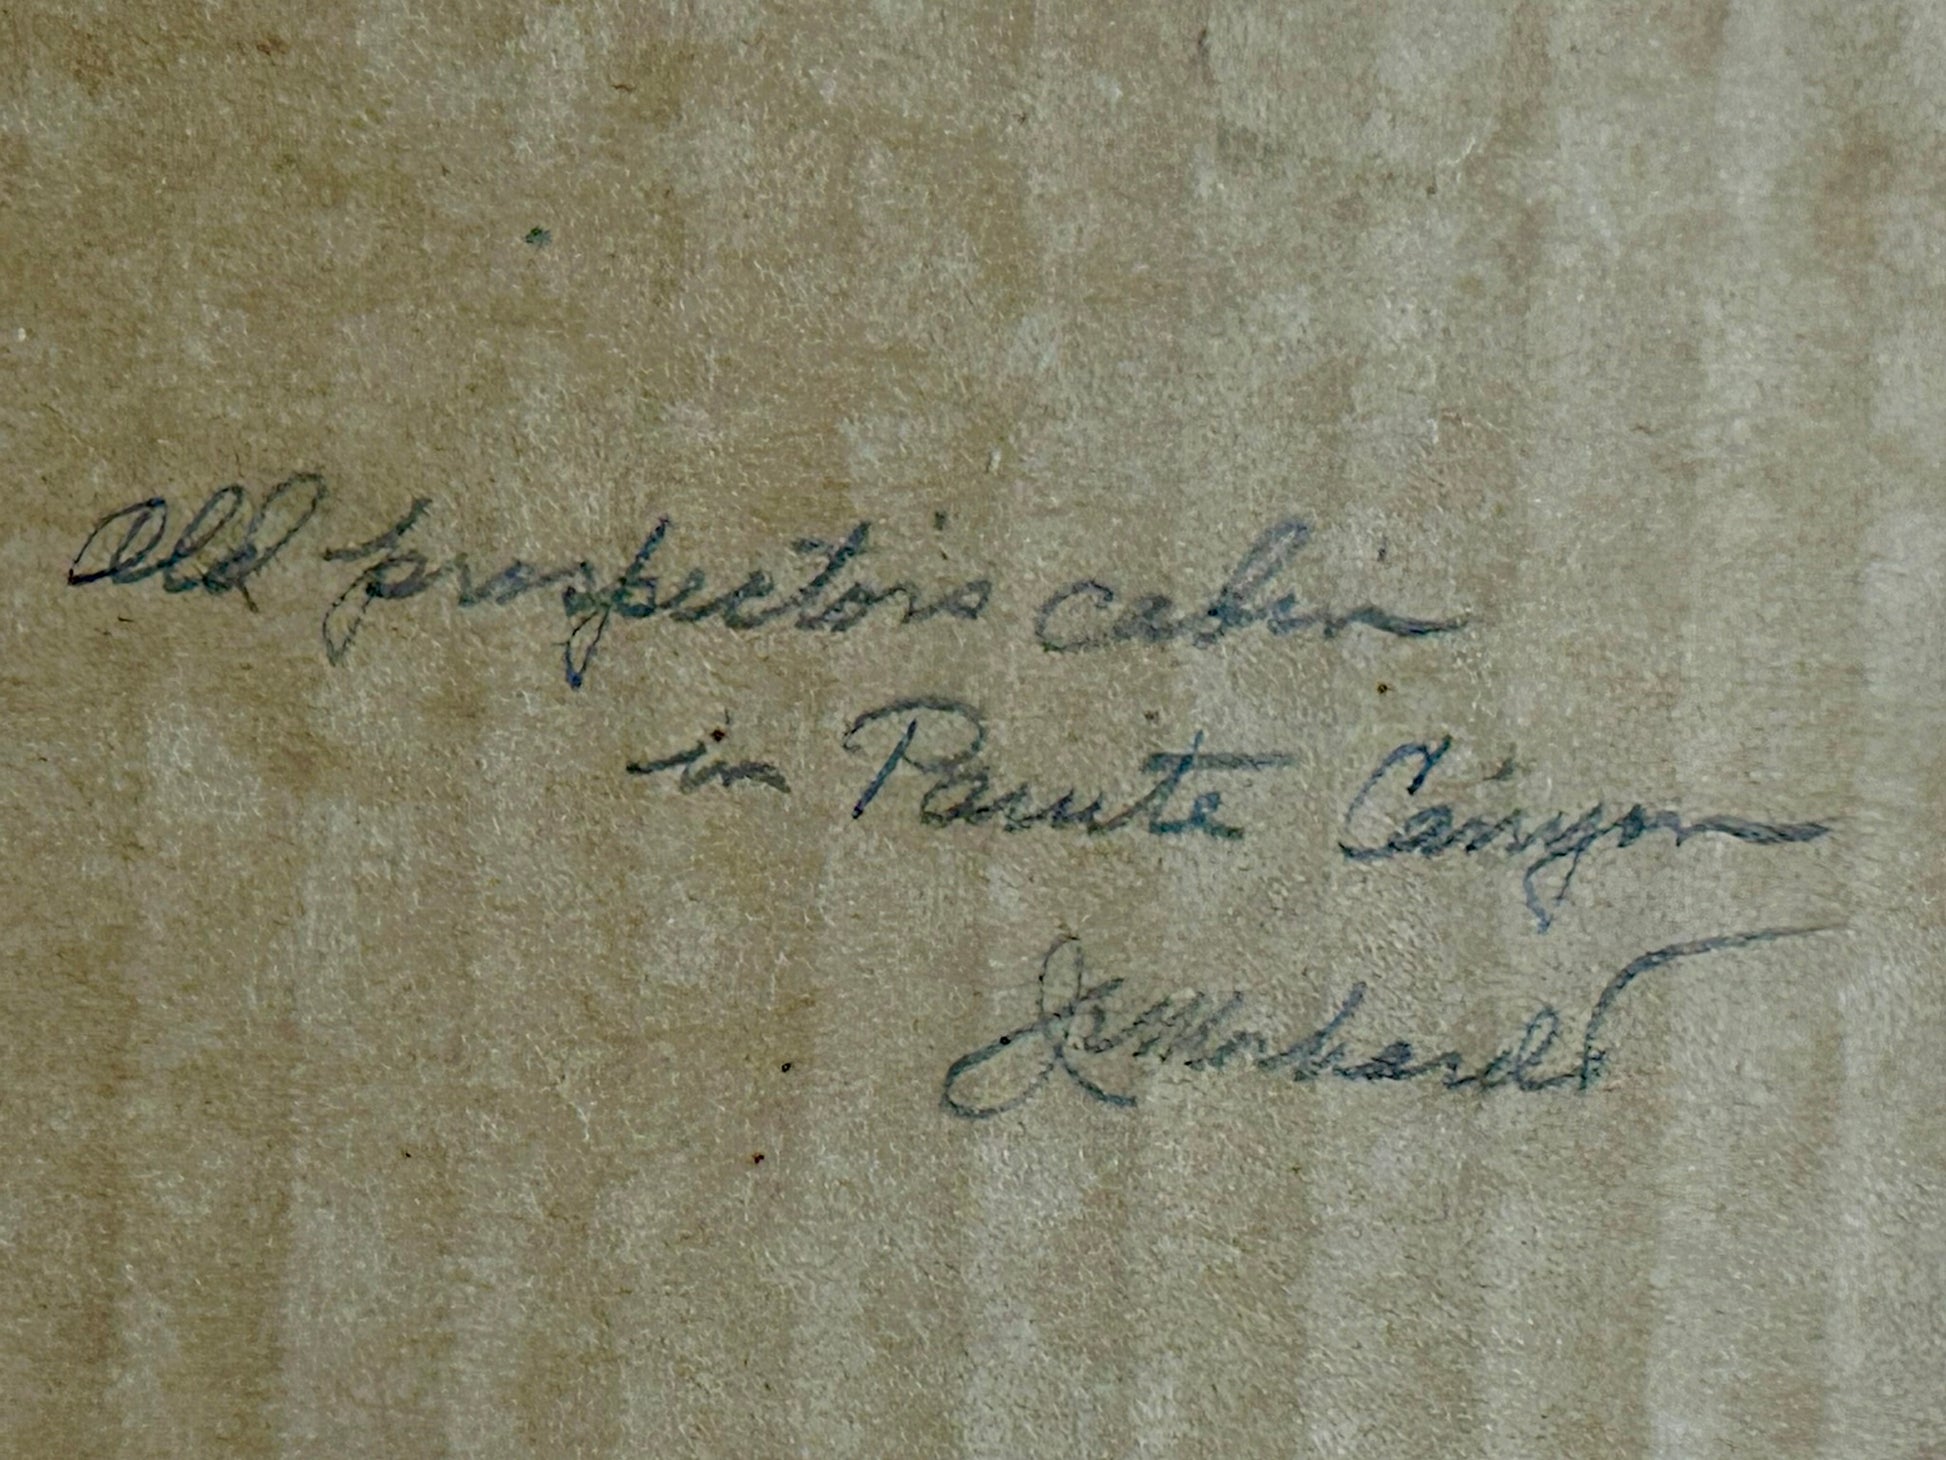 Old prospector's cabin
in Paiute Canyon